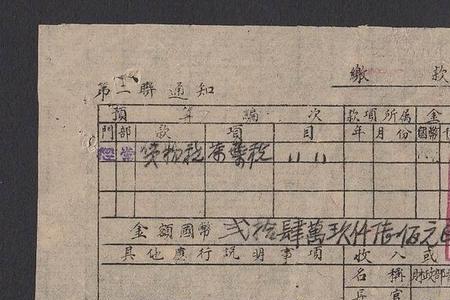 繳 款
第二聯通知
預 算 編 次 款項所屬 金
門 部 款 項 目 年 月 份 國幣
經常 貨物稅 菸葉稅 〃 〃
金額國幣 弍拾肆萬玖仟陆佰元
其他應行說明事項 收 入 或
名 稱 財政部
長 官